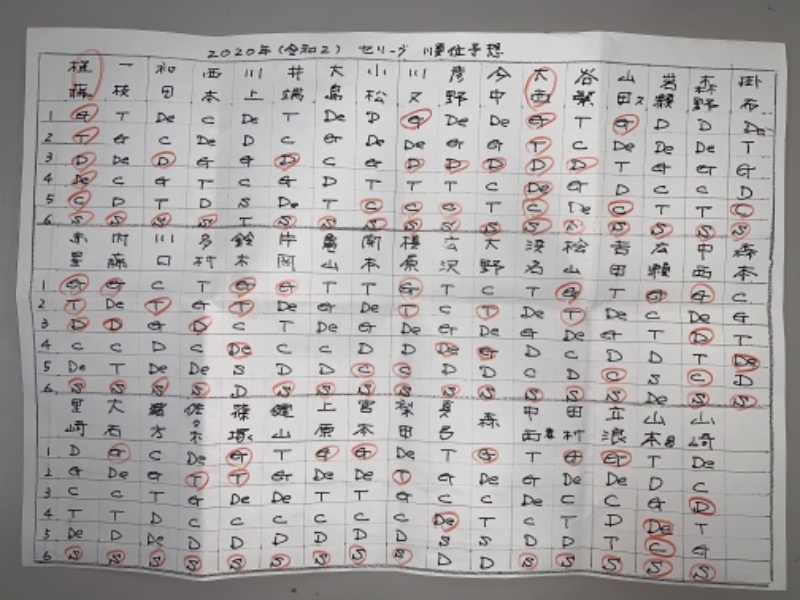 2020年(令和2) セリーグ 順位予想
一枝 和田 西本 川上 井端 大島 小松 川又 彦野 今中 大西 谷繁 山田ス 岩瀬 森野 掛布
1 G T De C De T De D G De De G T G D D De
2 T G C De D C G De De G G T C De De De T
3 D De D G G D C G D D D D D T G G G
4 De C G T C G D T T T C De G D C C D
5 C D T D S De T C C C T C De C T T C
6 S S S S T S S S S S S S S S S S S
赤星 内藤 川口 多村 鈴木 片岡 亀山 関本 槙原 広沢 大野 桧山 吉田 広瀬 中西 森本
1 G G C T G G T T G T C T G T G G C
2 T De T G T De G De T C T De T De C De G
3 D D G D C T De G De G De G De G T D T
4 C C D C De C C D D De G D C C D T De
5 De T De De S D D C C D D C D C S C D
6 S S S S D S S S S S S S S S De S S
里崎 大石 緒方 佐々木 篠塚 上原 宮本 梨田 真弓 森 中西 田村 立浪 山本昌 山崎
1 D G C De G T G G De T G T G G T De
2 G De G T T G De De T G De G De De D C
3 C C T G De De T T G C C De C C G D
4 T T D C C C C C C De T C T D De T
5 De D De D D D D D D S S D D T C G
6 S S S S S S S S S D D S S S S S